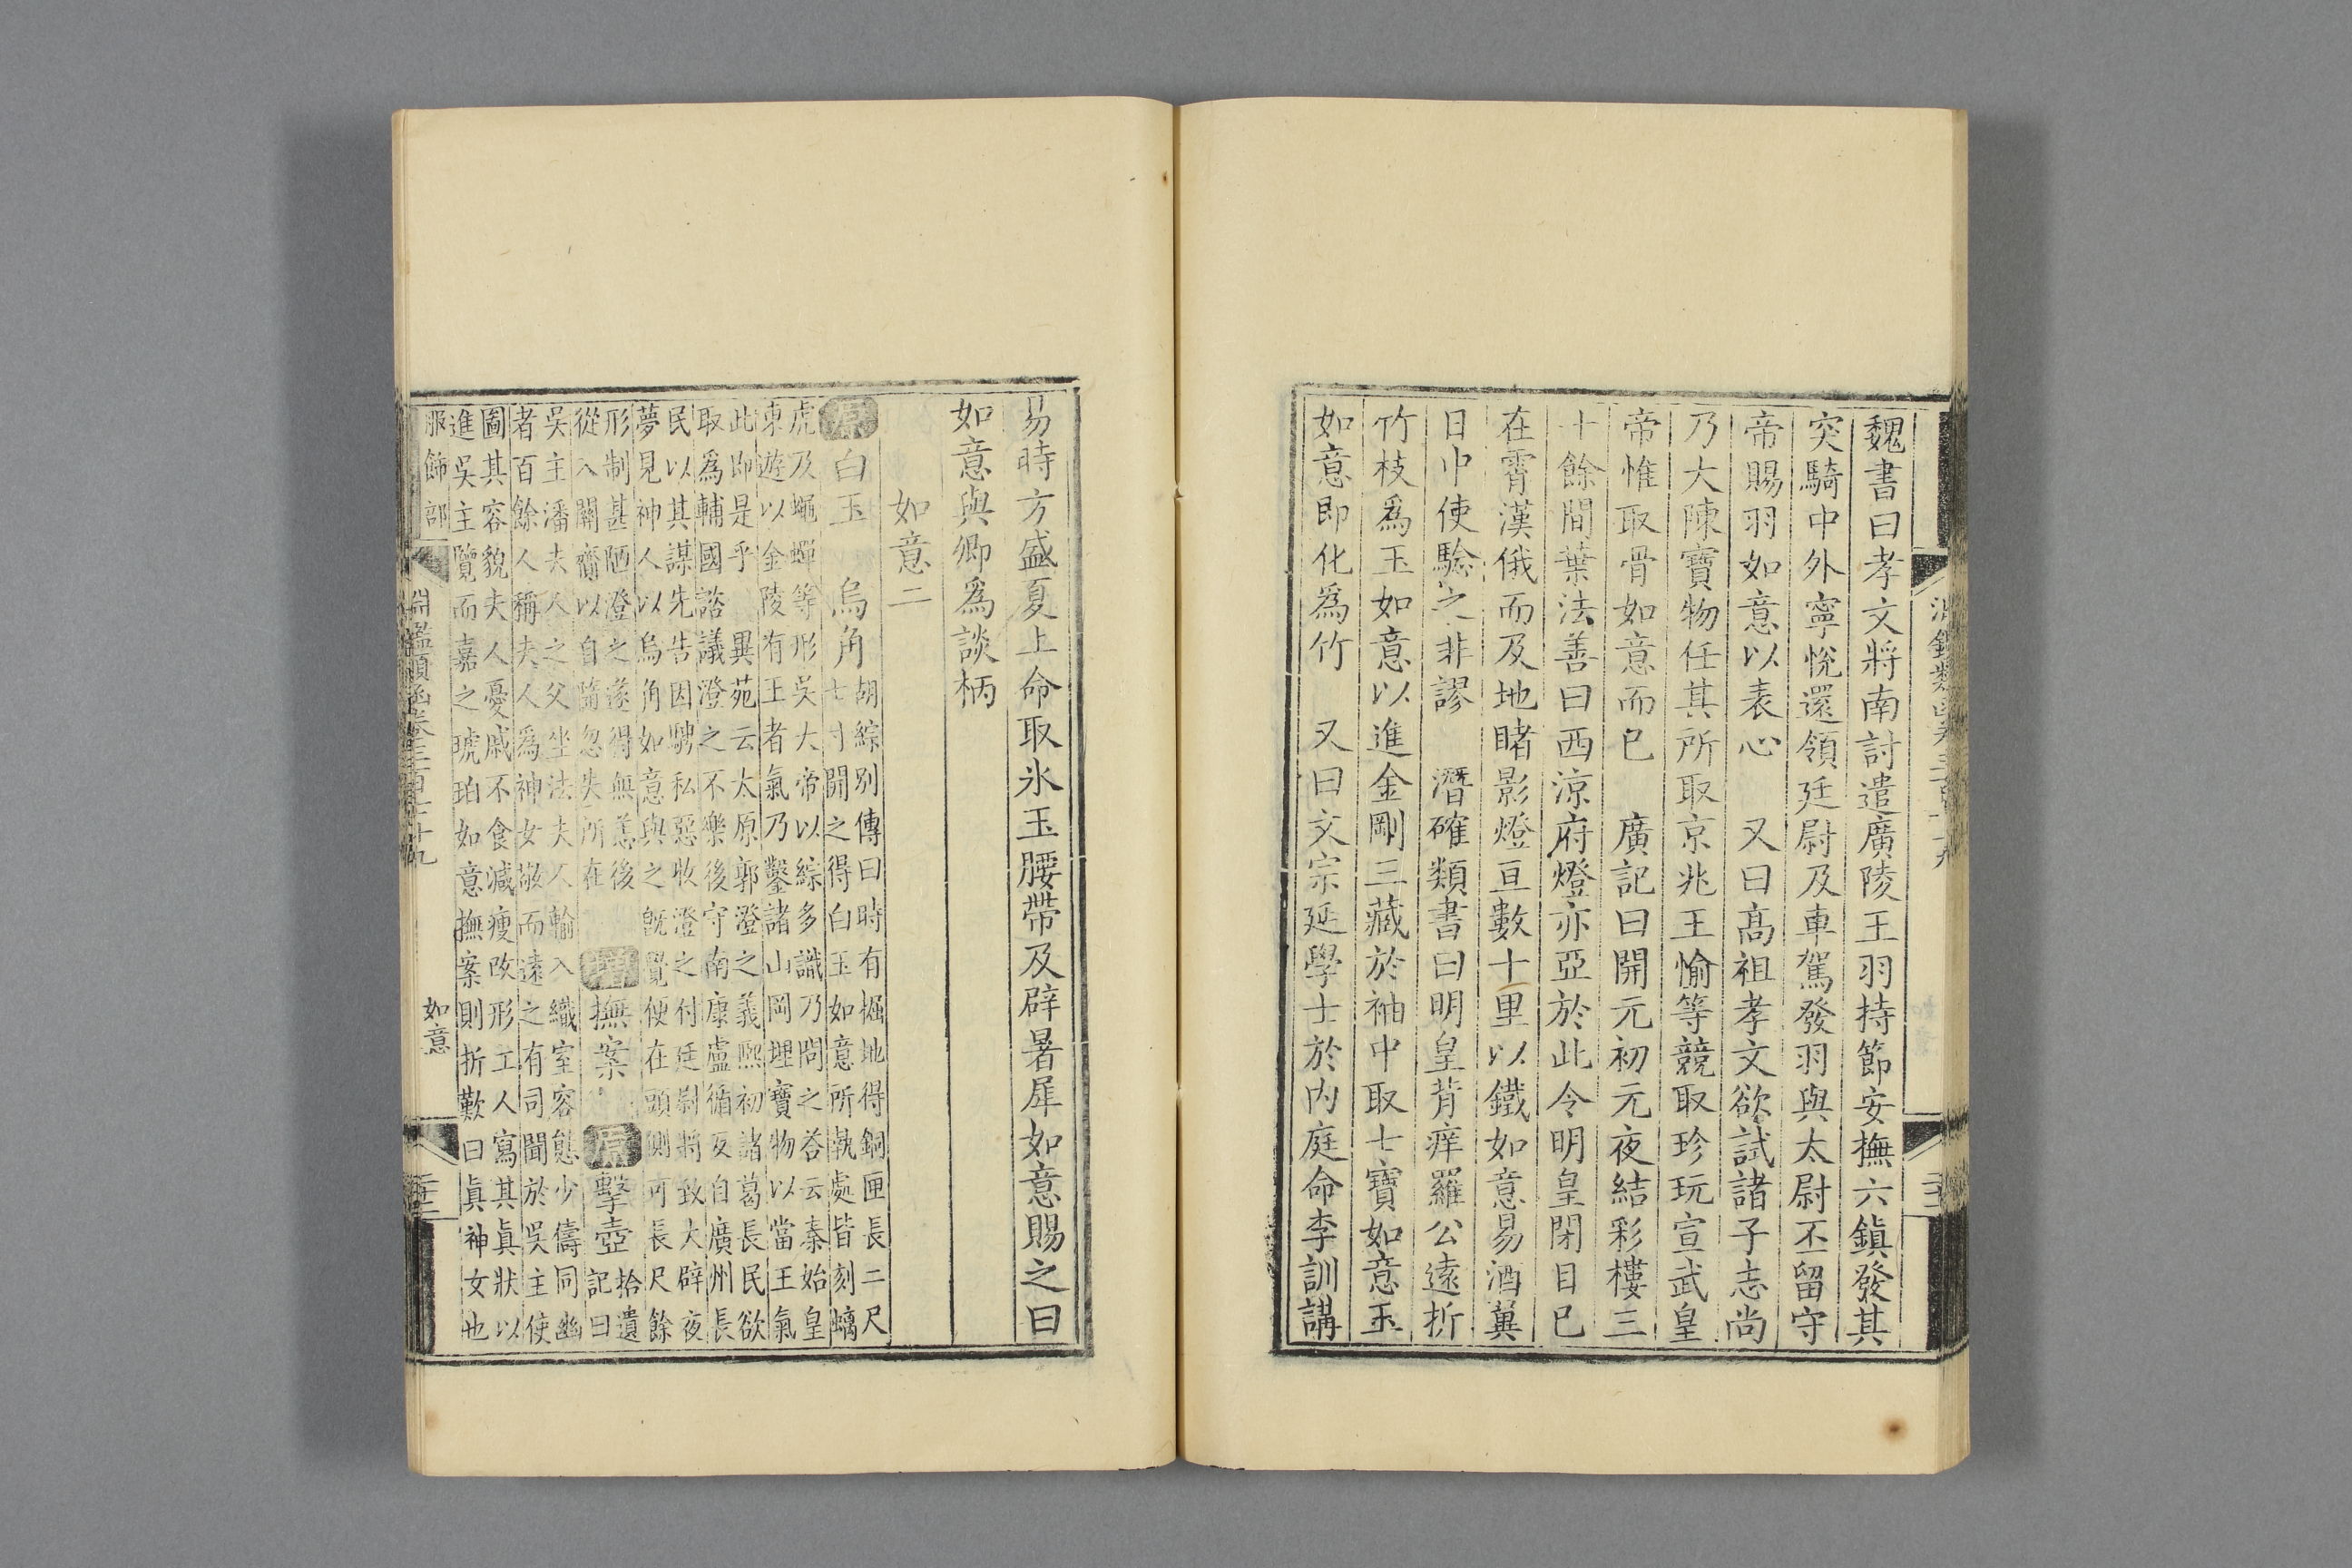 魏書曰孝文將南討遣廣陵王羽持節安撫六鎮發其
突騎中外寧悅還領廷尉及車駕發羽與太尉丕留守
帝賜羽如意以表心　又曰高祖孝文欲試諸子志尚
乃大陳寶物任其所取京兆王愉等競取珍玩宣武皇
帝惟取骨如意而已　廣記曰開元初元夜結彩樓三
十餘間葉法善曰西涼府燈亦亞於此令明皇閉目已
在霄漢俄而及地睹影燈亘數十里以鐵如意易酒翼
日中使驗之非謬　潛確類書曰明皇背痒羅公遠折
竹枝爲玉如意以進金剛三藏於袖中取七寶如意玉
如意即化爲竹　又曰文宗延學士於內庭命李訓講
易時方盛夏上命取氷玉腰帶及辟暑犀如意賜之曰
如意與卿爲談柄
如意二
原白玉　烏角
胡綜別傳曰時有掘地得銅匣長二尺
七寸開之得白玉如意所執處皆刻螭
虎及蠅蟬等形吳大帝以綜多識乃問之荅云秦始皇
東遊以金陵有王者氣乃鑿諸山岡埋寶物以當王氣
此即是乎　異苑云太原郭澄之義熙初諸葛長民欲
取爲輔國諮議澄之不樂後守南康盧循反自廣州長
民以其謀先告因騁私惡收澄之付廷尉將致大辟夜
夢見神人以烏角如意與之旣覺便在頭側可長尺餘
形制甚陋澄之遂得無恙後
從入關齎以自隨忽失所在
增撫案　原擊壺
拾遺
記曰
吳主潘夫人之父坐法夫人輸入織室容態少儔同幽
者百餘人稱夫人爲神女敬而遠之有司聞於吳主使
圖其容貌夫人憂戚不食減瘦改形工人寫其眞狀以
進吳主覽而嘉之琥珀如意撫案則折歎曰眞神女也
服飾部
淵鑑類函卷三百七十九
如意